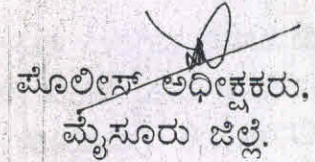 ಪೊಲೀಸ್ ಅಧೀಕ್ಷಕರು,
ಮೈಸೂರು ಜಿಲ್ಲೆ.